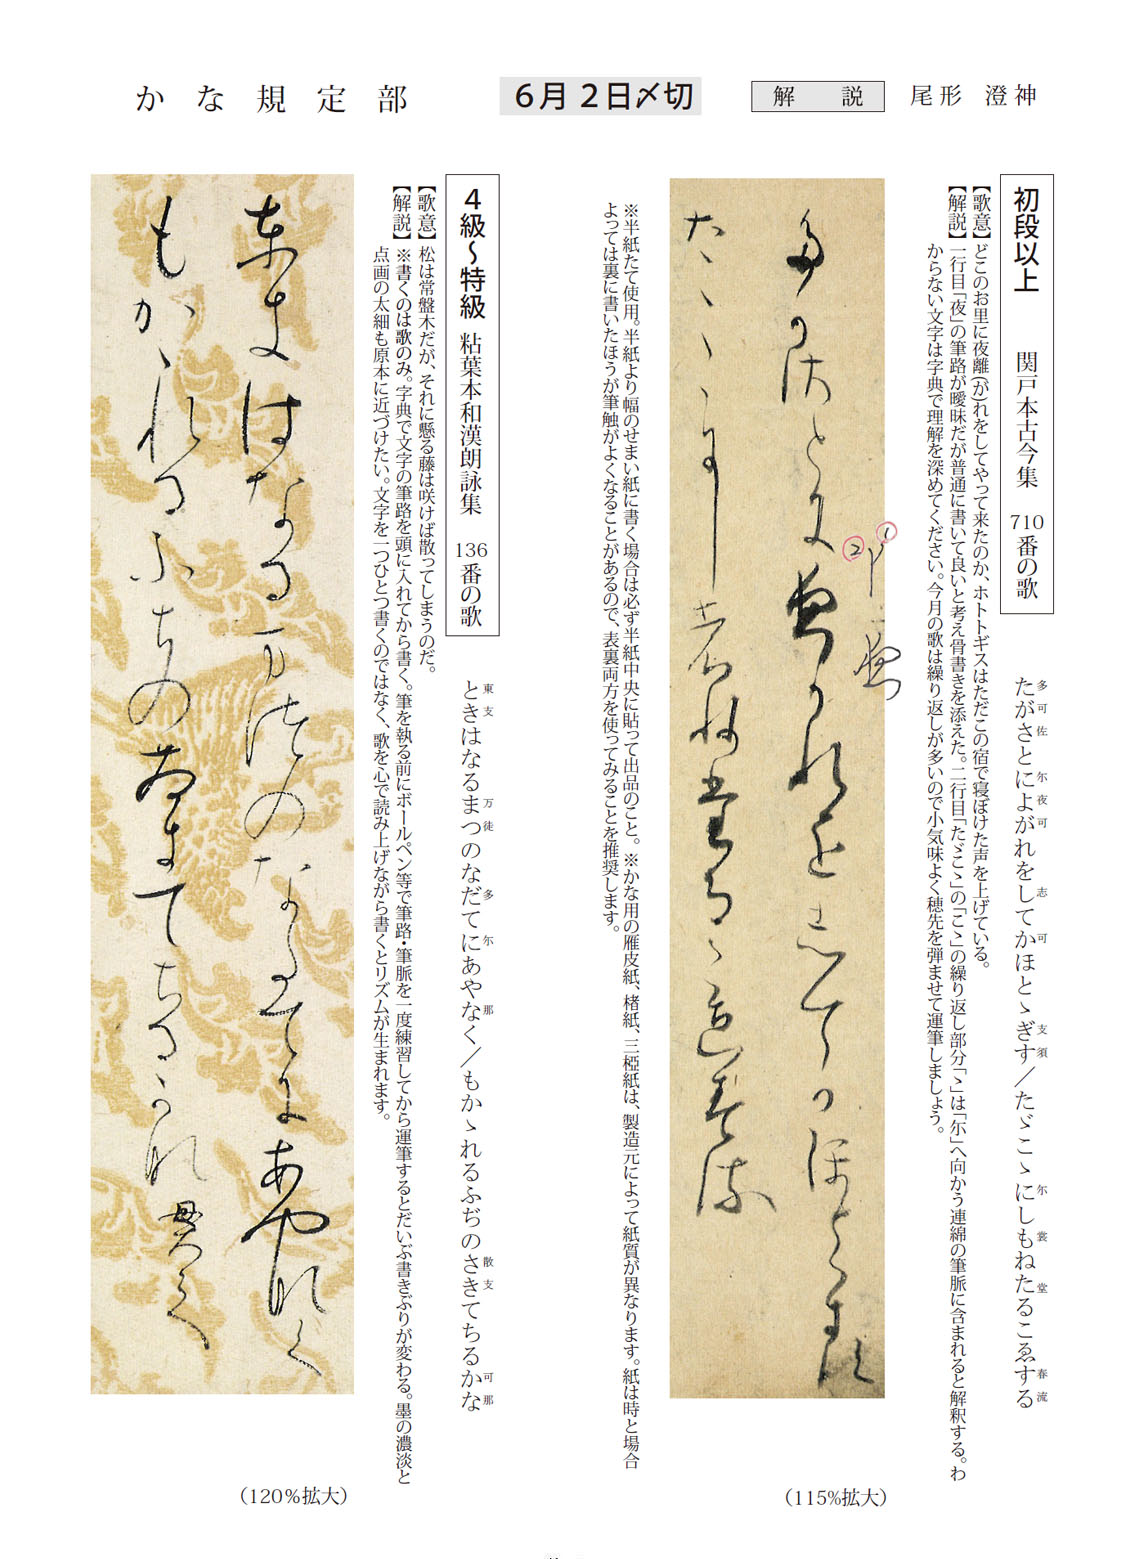 かな規定部
6月2日〆切
解説
尾形 澄神
初段以上 関戸本古今集 710番の歌
たがさとによがれをしてかほとゝぎす／たゞこゝにしもねたるこゑする
多可佐 尓夜可 志 可 支須 尓 裳 堂 春流
【歌意】どこのお里に夜離(が)れをしてやって来たのか、ホトトギスはただこの宿で寝ぼけた声を上げている。
【解説】一行目「夜」の筆路が曖昧だが普通に書いて良いと考え骨書きを添えた。二行目「たゞこゝ」の「こゝ」の繰り返し部分「ゝ」は「尓」へ向かう連綿の筆脈に含まれると解釈する。わ
からない文字は字典で理解を深めてください。今月の歌は繰り返しが多いので小気味よく穂先を弾ませて運筆しましょう。
①
②
夜
多可佐と尓夜可れをし弖可ほとゝ支須
たゝこゝ尓し裳ね堂るこゑ春流
（115%拡大）
※半紙たて使用。半紙より幅のせまい紙に書く場合は必ず半紙中央に貼って出品のこと。 ※かな用の雁皮紙、楮紙、三椏紙は、製造元によって紙質が異なります。紙は時と場合
よっては裏に書いたほうが筆触がよくなることがあるので、表裏両方を使ってみることを推奨します。
4級〜特級 粘葉本和漢朗詠集 136番の歌
ときはなるまつのなだてにあやなく／もかゝれるふぢのさきてちるかな
東支 万徒 多 尓 那 散支 可那
【歌意】松は常盤木だが、それに懸る藤は咲けば散ってしまうのだ。
【解説】※書くのは歌のみ。字典で文字の筆路を頭に入れてから書く。筆を執る前にボールペン等で筆路・筆脈を一度練習してから運筆するとだいぶ書きぶりが変わる。墨の濃淡と
点画の太細も原本に近づけたい。文字を一つひとつ書くのではなく、歌を心で読み上げながら書くとリズムが生まれます。
東支はなる万徒のな多て尓あや那く
もかゝれるふちの散支てちる可那
（120%拡大）